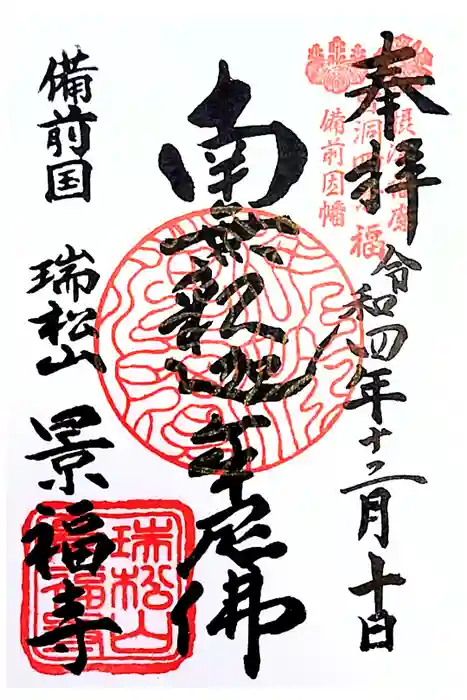 奉拝
令和四年十二月十日
備前因幡
南無釈迦牟尼佛
備前国
瑞松山 景福寺
瑞松山
景福寺